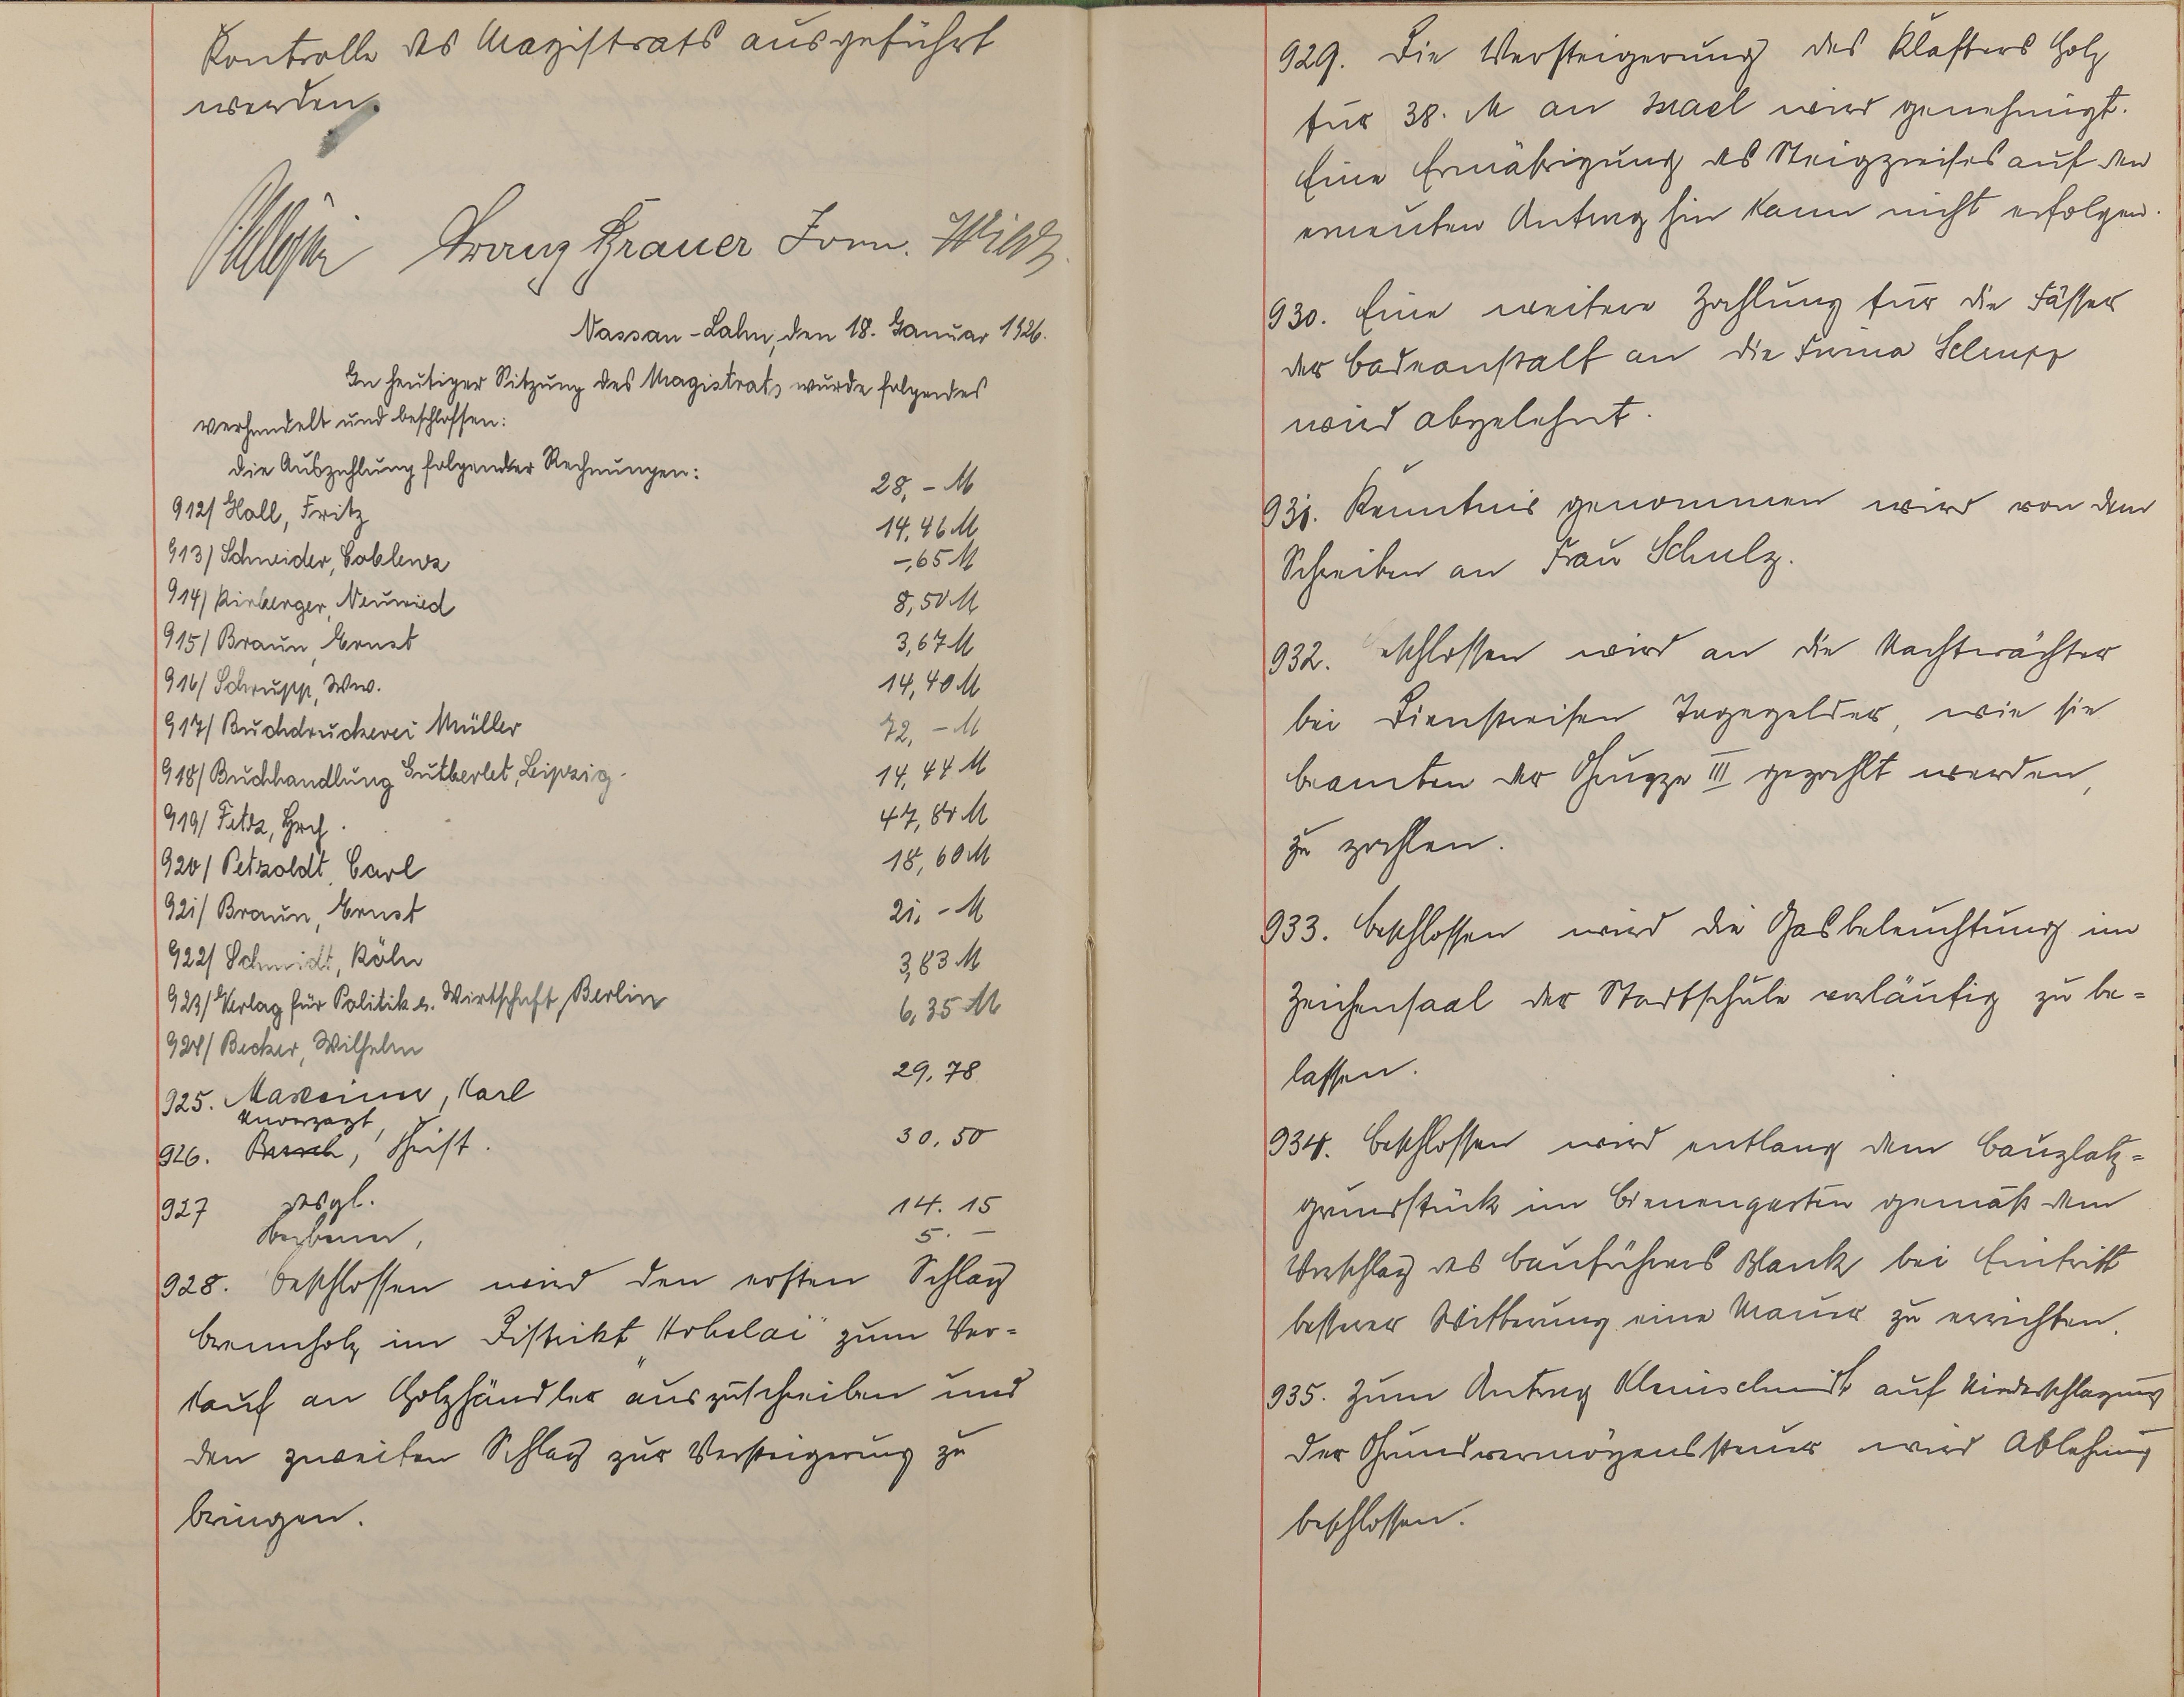 Kontrolle des Magistrats ausgeführt
werden.
Franz Krauer Form.
Nassau-Lahn, den 18. Januar 1926.
In heutiger Sitzung des Magistrats wurde folgendes
verhandelt und beschlossen:
die Auszahlung folgender Rechnungen:
912/ Holl, Fritz 28,- M
913/ Schneider, Coblenz 14,46 M
914/ Kirberger, Neuwied -,65 M
915/ Braun, Ernst 8,50 M
916/ Schrupp, Ww. 3,67 M
917/ Buchdruckerei Müller 14,40 M
918/ Buchhandlung Gutberlet, Leipzig. 72,- M
919/ Fetz, Hrch. 14,44 M
920/ Petzoldt, Carl 47,80 M
921/ Braun, Ernst 18,60 M
922/ Schmidt, Köln 21,- M
923/ Verlag für Politik u. Wirtschaft, Berlin 3,83 M
924/ Becker, Wilhelm 6,35 M
925. Karl 29,78
Unverzagt,
926. Christ. 30,50
927 desgl. 14.15
5.-
928. Beschlossen wird den ersten Schlag
Brennholz im Distrikt zum Ver-
kauf an Holzhändler auszuschreiben und
den zweiten Schlag zur Versteigerung zu
bringen.
929. Die Versteigerung des Klafters Holz
für 38. M an wird genehmigt.
Eine Ermäßigung des Steigpreises auf den
erneuten Antrag hin kann nicht erfolgen.
930. Eine weitere Zahlung für die Fässer
der Badeanstalt an die Firma Schrupp
wird abgelehnt.
931. Kenntnis genommen wird von dem
Schreiben an Frau Schulz.
932. Beschlossen wird an die Nachtwächter
bei Dienstreisen Tagegelder, wie sie
Beamten der Gruppe III gezahlt werden,
zu zahlen.
933. Beschlossen wird die Gasbeleuchtung im
Zeichensaal der Stadtschule vorläufig zu be-
lassen.
934. Beschlossen wird entlang dem Bauplatz-
grundstück im Bienengarten gemäß dem
Vorschlag des Bauführers Blank bei Eintritt
besserer Witterung eine Mauer zu errichten.
935. Zum Antrag Kleinschmidt auf Niederschlagung
der Grundvermögenssteuer wird Ablehnung
beschlossen.